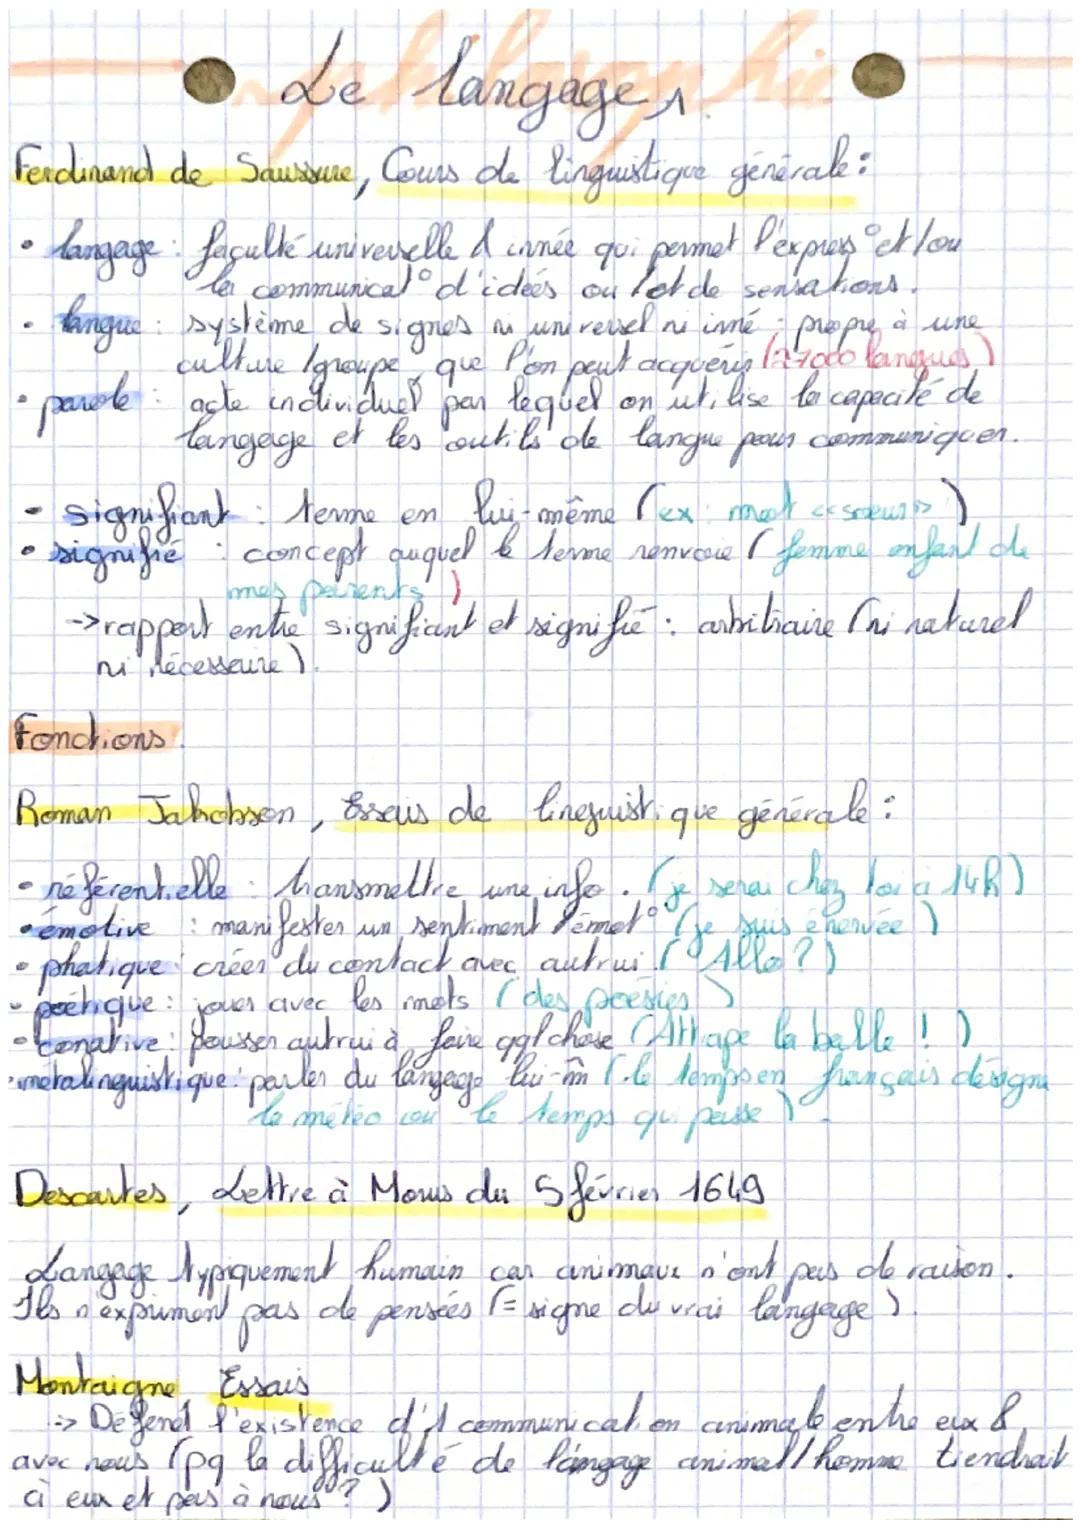 philosophie
Le langage 1
Ferdinand de Saussure, Cours de linguistique générale :
• langage : faculté universelle & innée qui permet l'express° et/ou
la communicat° d'idées ou /et de sensations.
• langue : système de signes ni universel ni inné : propre à une
culture /groupe, que l'on peut acquérir (≈7000 langues)
• parole : acte individuel par lequel on utilise la capacité de
langage et les outils de langue pour communiquer.
• signifiant : terme en lui-même (ex : mot « soeur »)
• signifié : concept auquel le terme renvoie (femme enfant de
mes parents)
-> rapport entre signifiant et signifié : arbitraire (ni naturel
ni nécessaire).
Fonctions.
Roman Jakobson, Essais de linguistique générale :
• référentielle : transmettre une info. (je serai chez toi à 14h)
• émotive : manifester un sentiment /émot° (je suis énervée)
• phatique : créer du contact avec autrui. (Allo ?)
• poétique : jouer avec les mots (des poésies)
• conative : pousser autrui à faire qql chose (Attrape la balle !)
• métalinguistique : parler du langage lui-m̂ (le temps en français désigne
la météo ou le temps qui passe).
Descartes, Lettre à Morus du 5 février 1649
Langage typiquement humain car animaux n'ont pas de raison.
Ils n'expriment pas de pensées (= signe du vrai langage).
Montaigne, Essais
-> Défend l'existence d'1 communication animale entre eux &
avec nous (pq la difficulté de langage animal/homme tiendrait
à eux et pas à nous ?)